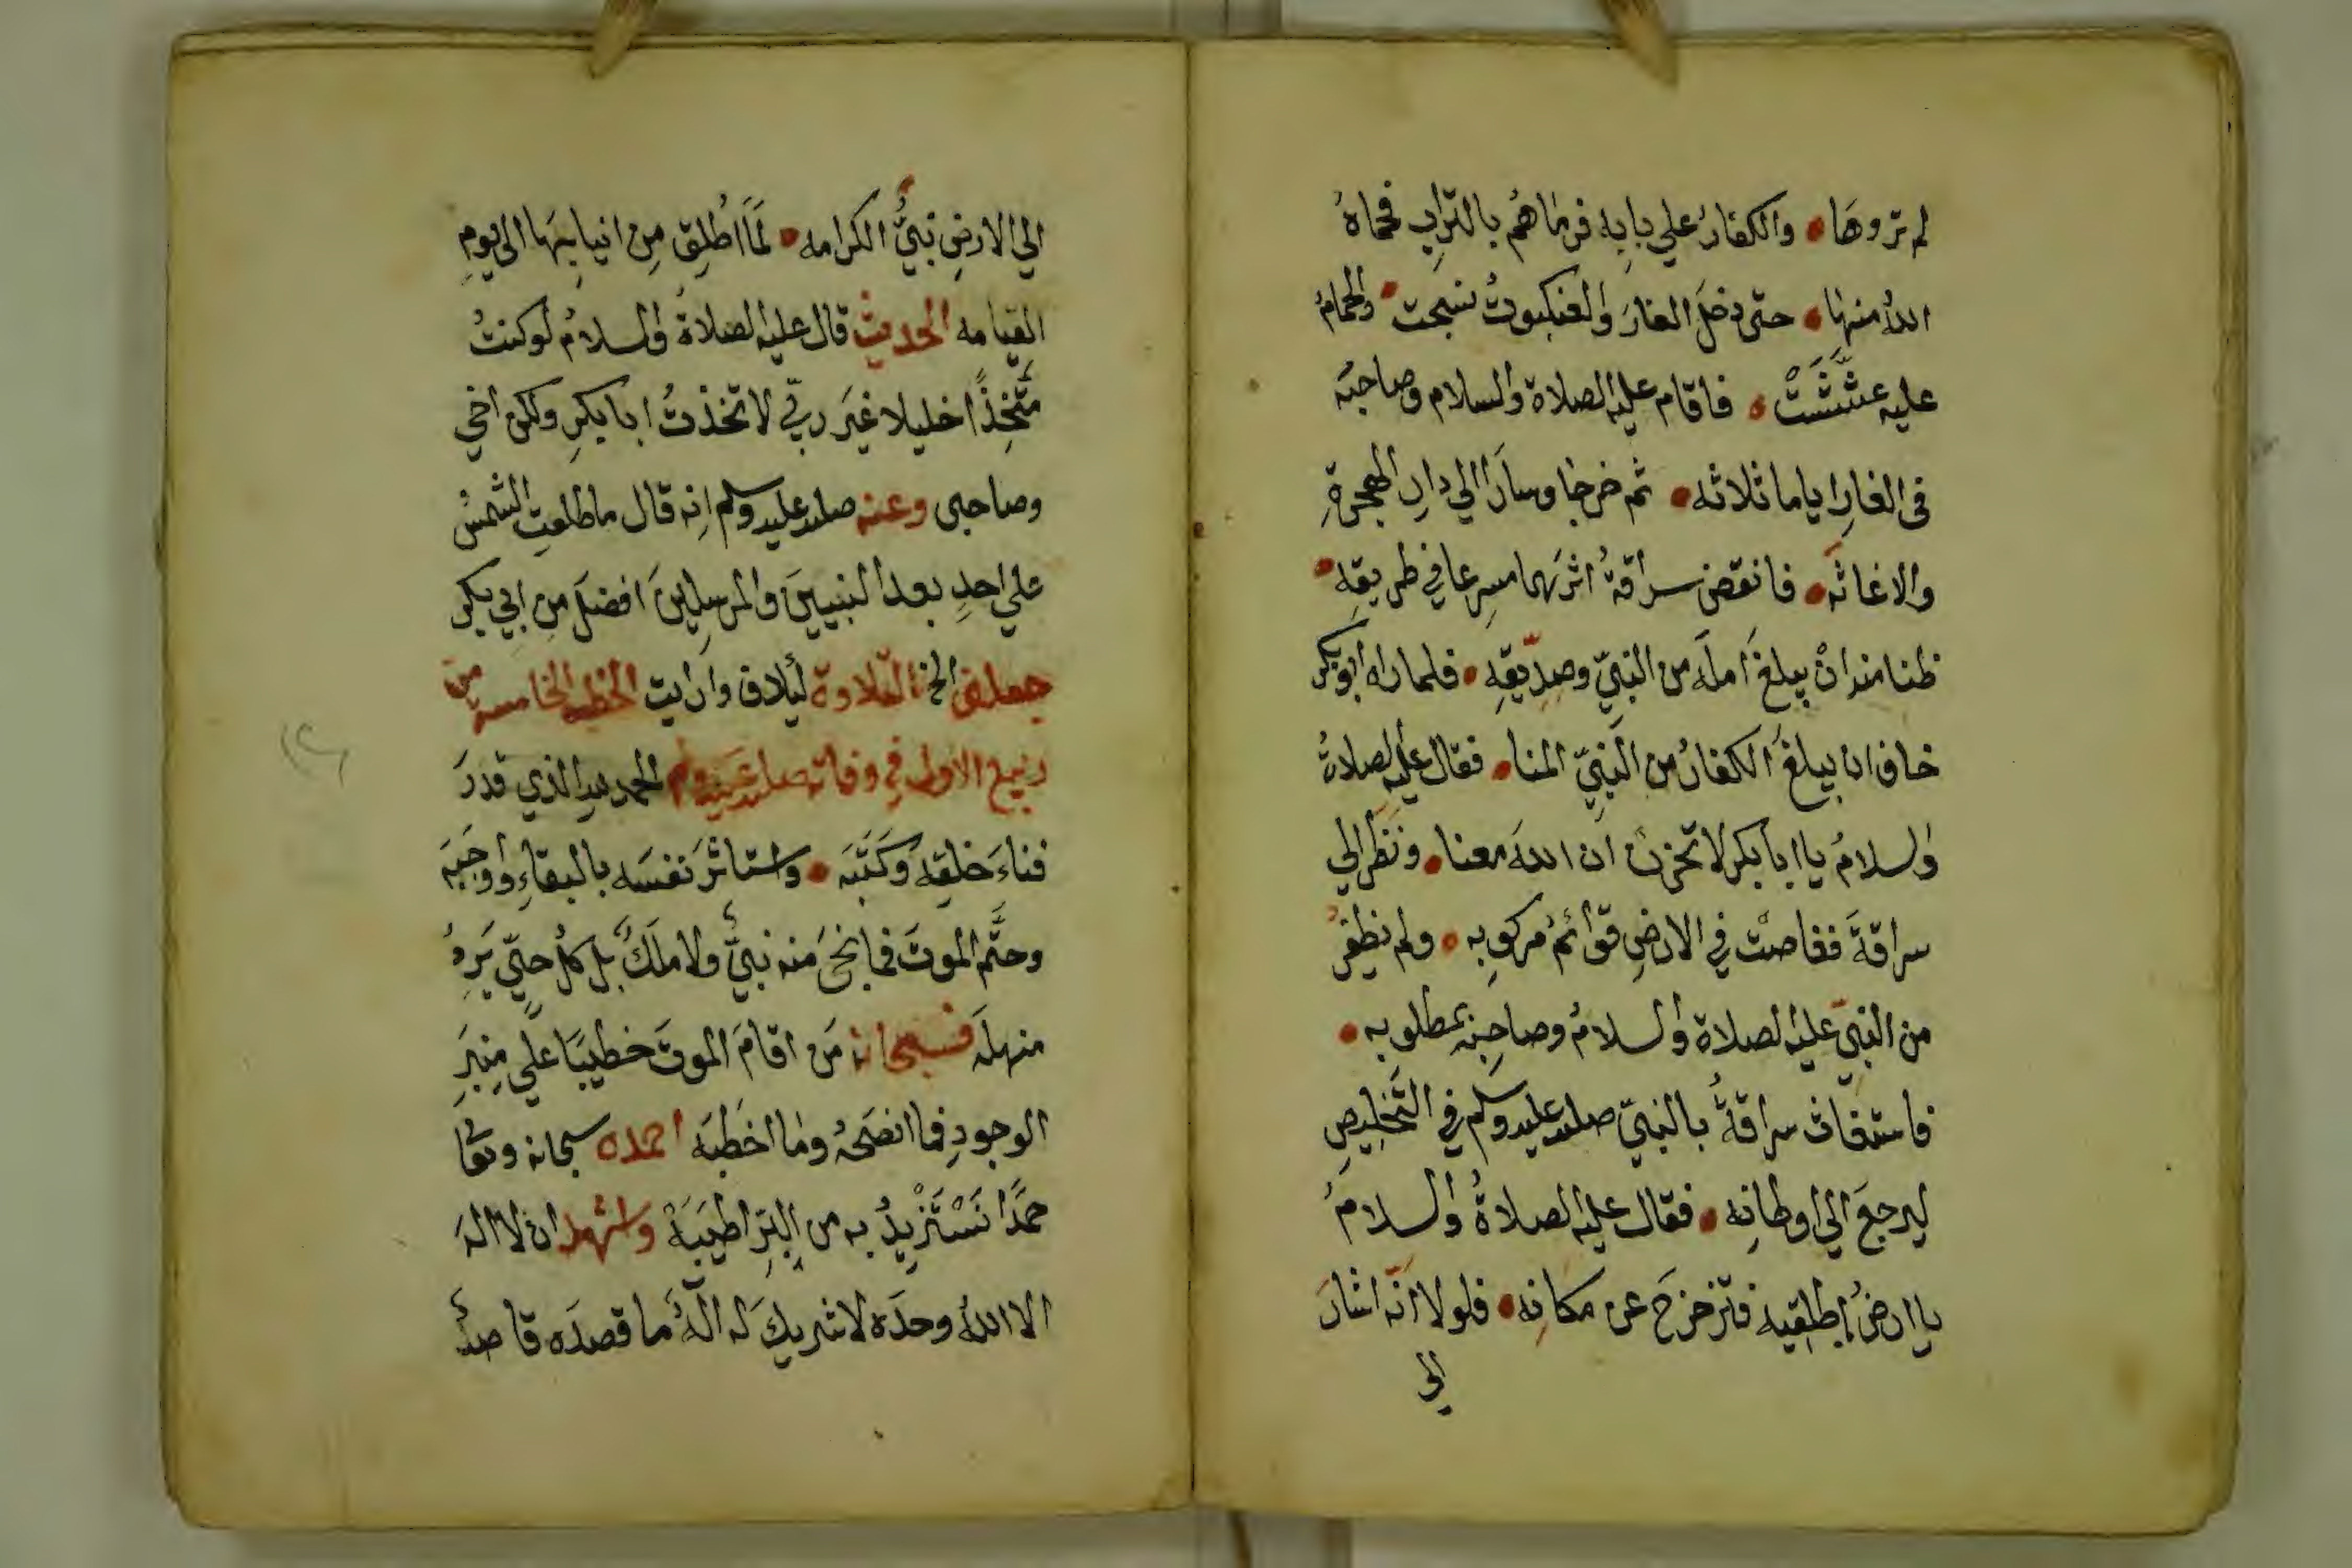 لم تروها • والكفار علي بابه فرماهُم بالتراب فحماهُ
اللهُ منها • حتى دخلَ الغارَ والعنكبوتُ نسجت • والحمامُ
عليه عشَّشَتْ • فاقام عليه الصلاة والسلام وصاحبَه
فى الغارِ اياما ثلاثه • ثم خرجا وسارَا الي دارِ الهجرةِ
والاغاثَه • فانقض سراقةُ اثرَهما مسِرعا في طريقِه •
ظنا منه انْ يبلغَ املَه من النبيّ وصدّيقِه • فلما راه ابوبكر
خاف ان يبلغَ الكفارُ من النَّبِيّ المنا • فقال عليه الصلاةُ
والسلامُ يا ابا بكر لا تحزنْ ان اللهَ معنا • ونَظَرَ الي
سراقةَ فغاصتْ في الارضِ قوائمُ مركوبِه • ولم يظفرْ
من النبيّ عليه الصلاة والسلامُ وصاحِبِه بمطلوبه •
فاستغاث سراقةُ بالنبيّ صلى الله عليه وسلم في التَّخليصِ
ليرجعَ الي اوطانِه • فقال عليه الصلاةُ والسلامُ
يا ارضُ اطلقِيه فتزحزحَ عن مكانِه • فلولا انّه اشارَ
الى
الي الارضِ نبيُّ الكرامه • لَمَا اُطلِقَ مِن انيابِهَا الى يومِ
القيامه الحديث قال عليه الصلاةُ والسلامُ لو كنتُ
متَّخِذًا خليلا غيَر ربّي لاتخذتُ ابا بكرٍ ولكن اخي
وصاحبى وعنه صلى الله عليه وسلم انه قال ما طلعتِ الشمسُ
علي احدٍ بعد النبيينَ والمرسلِينَ افضلَ مِن ابي بكرٍ
جعلنى الخ التلاوة لئلاف وارايت الخطبه الخامسة من
ربيع الاول في وفاته صلى الله عليه وسلم الحمد لله الذي قدرَ
فناءَ خلقِه وكَتَبَه • واستاثرَ نفسَه بالبقاءِ واوجَبَه
وحتَّم الموتَ فما نجىَ منه نبيٌّ ولا ملَكٌ بل كلُ حيٍّ يَرِدُ
منهلَه فسبحانه مَن اقامَ الموتَ خطيبًا علي مِنبَرِ
الوجودِ فما انصَحَهُ وما اخطبَه احمده سبحانه وتعا
حمدًا نَسْتَزْيدُ به من البِرِّ اطيَبَهْ واشهد ان لا الهَ
الا اللهُ وحدَه لا شريكَ له الهٌ ما قصدَه قاصدٌ